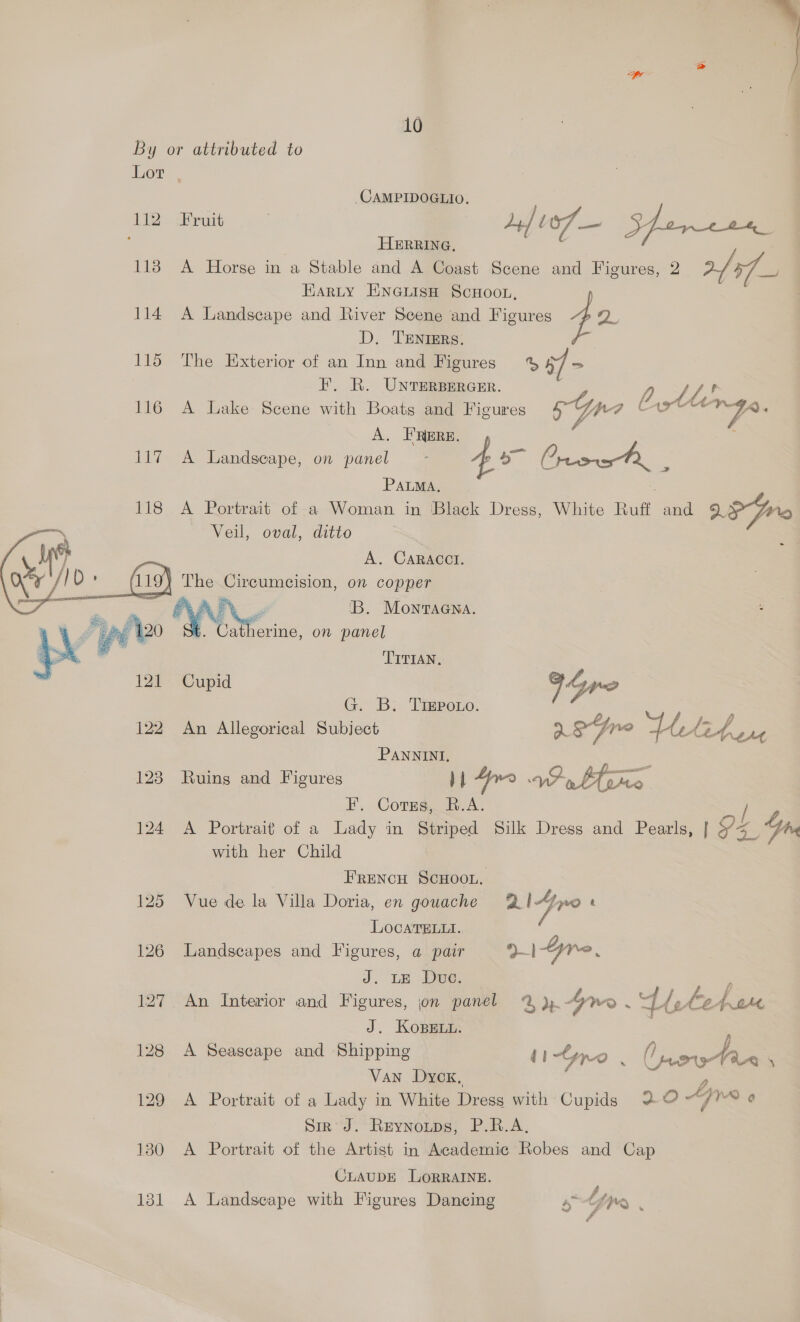 10
By or attributed to
Lot
CAMPIDOGLIO.
112 Fruit 4/10/- Spencer
HERRING.
113 A Horse in a Stable and A Coast Scene and Figures, 2 2/5/-
EARLY ENGLISH SCHOOL.
114 A Landscape and River Scene and Figures 42
D. TENIERS.
115 The Exterior of an Inn and Figures
F. R. UNTERBERGER.
116 A Lake Scene with Boats and Figures 5 Gns Cottings.
A. FRERE.
117 A Landscape, on panel - Crouch
PALMA.
118 A Portrait of a Woman in Black Dress, White Ruff and 28 Gns
Veil, oval, ditto
A. CARACCI.
119 The Circumcision, on copper
B. MONTAGNA.
120 St. Catherine, on panel
TITIAN.
121 Cupid 9 Gns
G. B. TIEPOLO.
122 An Allegorical Subject 28 Gns
PANNINI.
123 Ruins and Figures 11 Gns
F. COTES, R.A.
124 A Portrait of a Lady in Striped Silk Dress and Pearls,
with her Child
FRENCH SCHOOL.
125 Vue de la Villa Doria, en gouache 21 Gns
LOCATELLI.
126 Landscapes and Figures, a pair 21 Gns.
J. LE DUC.
127 An Interior and Figures, on panel
J. KOBELL.
128 A Seascape and Shipping 11 Gns.
VAN DYCK.
129 A Portrait of a Lady in White Dress with Cupids 20 Gns
SIR J. REYNOLDS, P.R.A.
130 A Portrait of the Artist in Academic Robes and Cap
CLAUDE LORRAINE.
131 A Landscape with Figures Dancing 5 Gns.